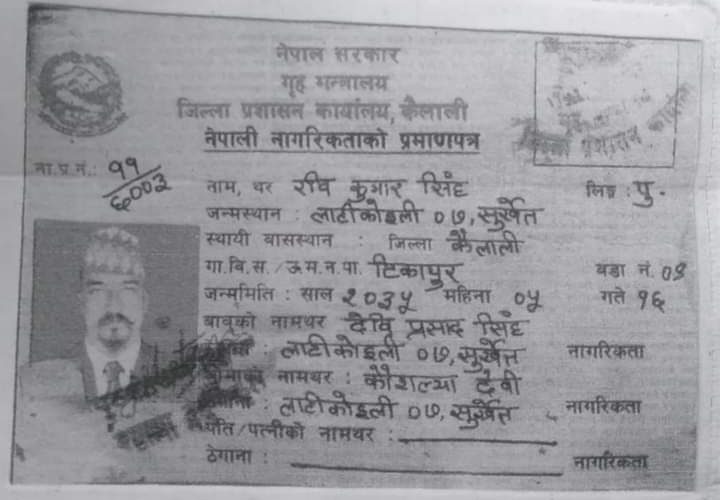 नेपाल सरकार
गृह मन्त्रालय
जिल्ला प्रशासन कार्यालय, कैलाली
नेपाली नागरिकताको प्रमाणपत्र
ना.प्र.नं.: ११/६००३
नाम, थर रवि कुमार सिंह लिङ्ग : पु.
जन्मस्थान : लाटीकोइली ०७, सुर्खेत
स्थायी बासस्थान : जिल्ला कैलाली
गा.वि.स./ऊ.म.न.पा. टिकापुर वडा नं. ०९
जन्ममिति : साल २०३५ महिना ०५ गते १६
बाबुको नामथर देवि प्रसाद सिंह
: लाटीकोइली ०७, सुर्खेत नागरिकता
नामथर : कौशल्या देवी
: लाटीकोइली ०७, सुर्खेत नागरिकता
पति/पत्नीको नामथर :
ठेगाना : नागरिकता